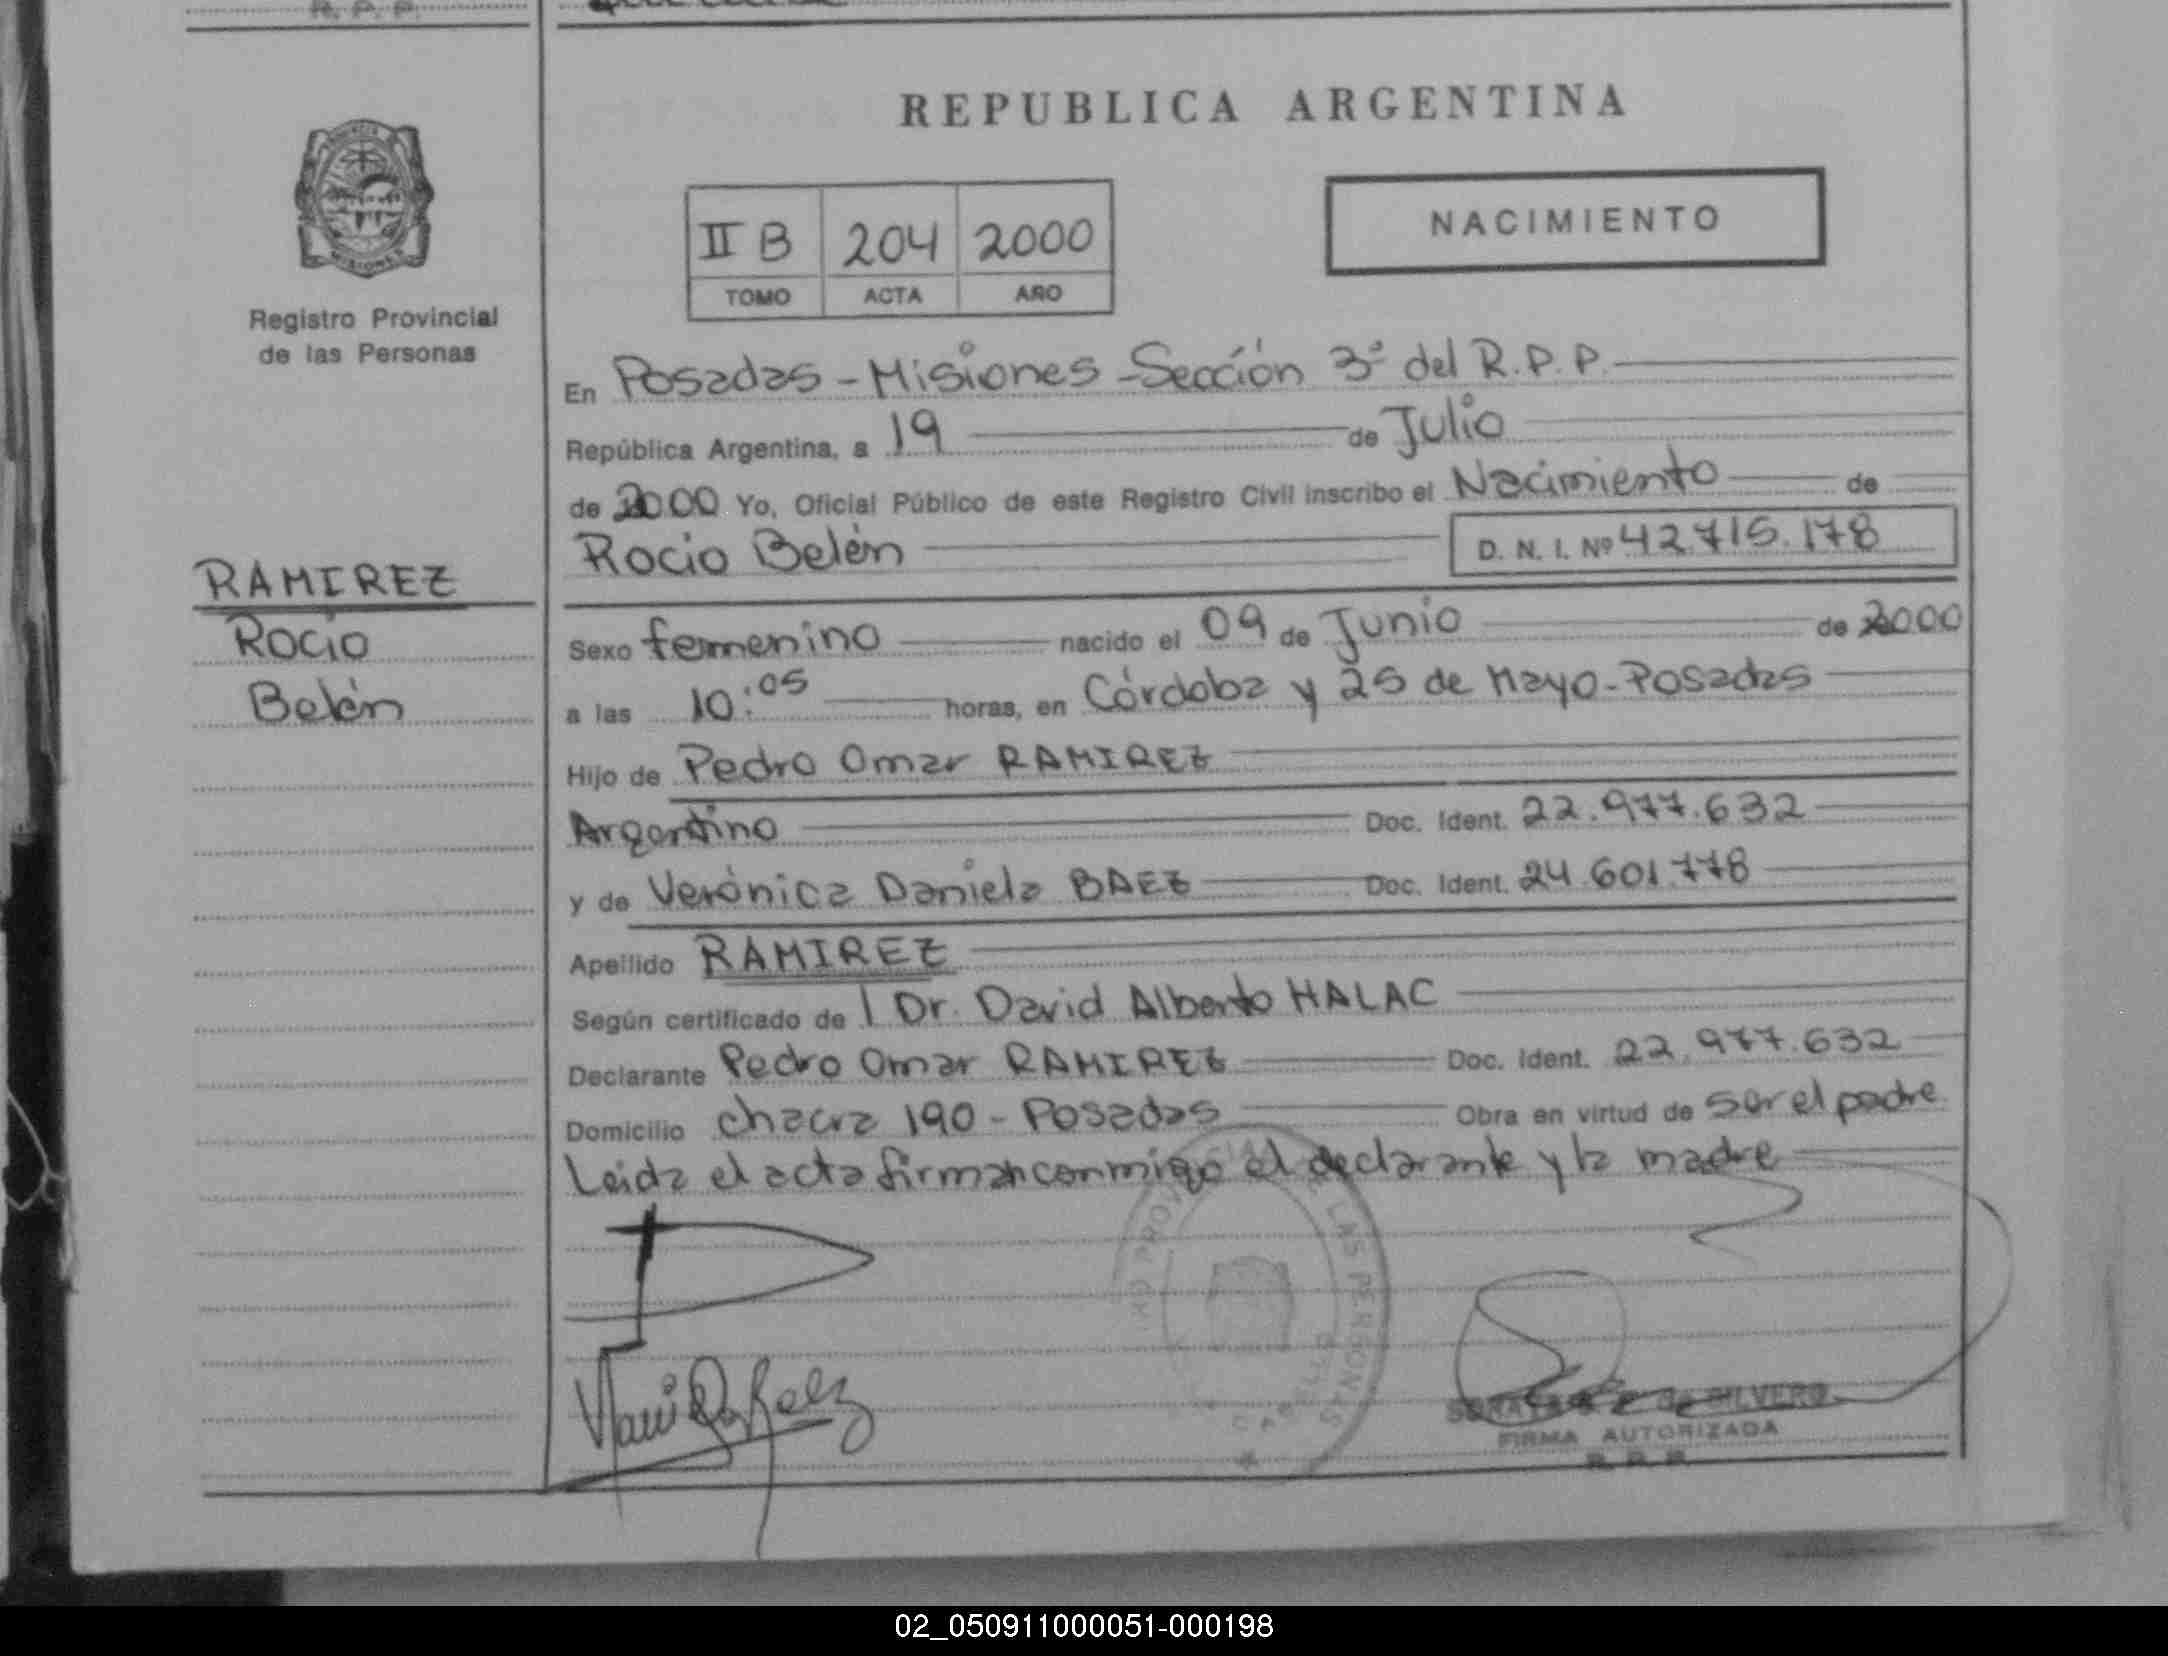 R. P. P.
REPUBLICA ARGENTINA
MISIONES
Registro Provincial
de las Personas
II B 204 2000
TOMO ACTA AÑO
NACIMIENTO
En Posadas - Misiones - Sección 3ª del R.P.P.
República Argentina, a 19 de Julio
de 2000 Yo, Oficial Público de este Registro Civil inscribo el Nacimiento de
Rocio Belén D. N. I. Nº 42.715.178
RAMIREZ
Rocio
Belén
Sexo femenino nacido el 09 de Junio de 2000
a las 10:05 horas, en Córdoba y 25 de Mayo - Posadas
Hijo de Pedro Omar RAMIREZ
Argentino Doc. Ident. 22.977.632
y de Verónica Daniela BAEZ Doc. Ident. 24.601.778
Apellido RAMIREZ
Según certificado de l Dr. David Alberto HALAC
Declarante Pedro Omar RAMIREZ Doc. Ident. 22.977.632
Domicilio chacra 190 - Posadas Obra en virtud de ser el padre
Leida el acta firman conmigo el declarante y la madre
LAS PERSONAS
de SILVERO
FIRMA AUTORIZADA
R. P. P.
02_050911000051-000198